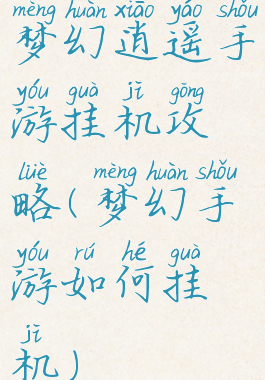 mèng huàn xiāo yáo shǒu
梦幻逍遥手
yóu guà jī gōng
游挂机攻
lüè mèng huàn shǒu
略(梦幻手
yóu rú hé guà
游如何挂
jī
机)